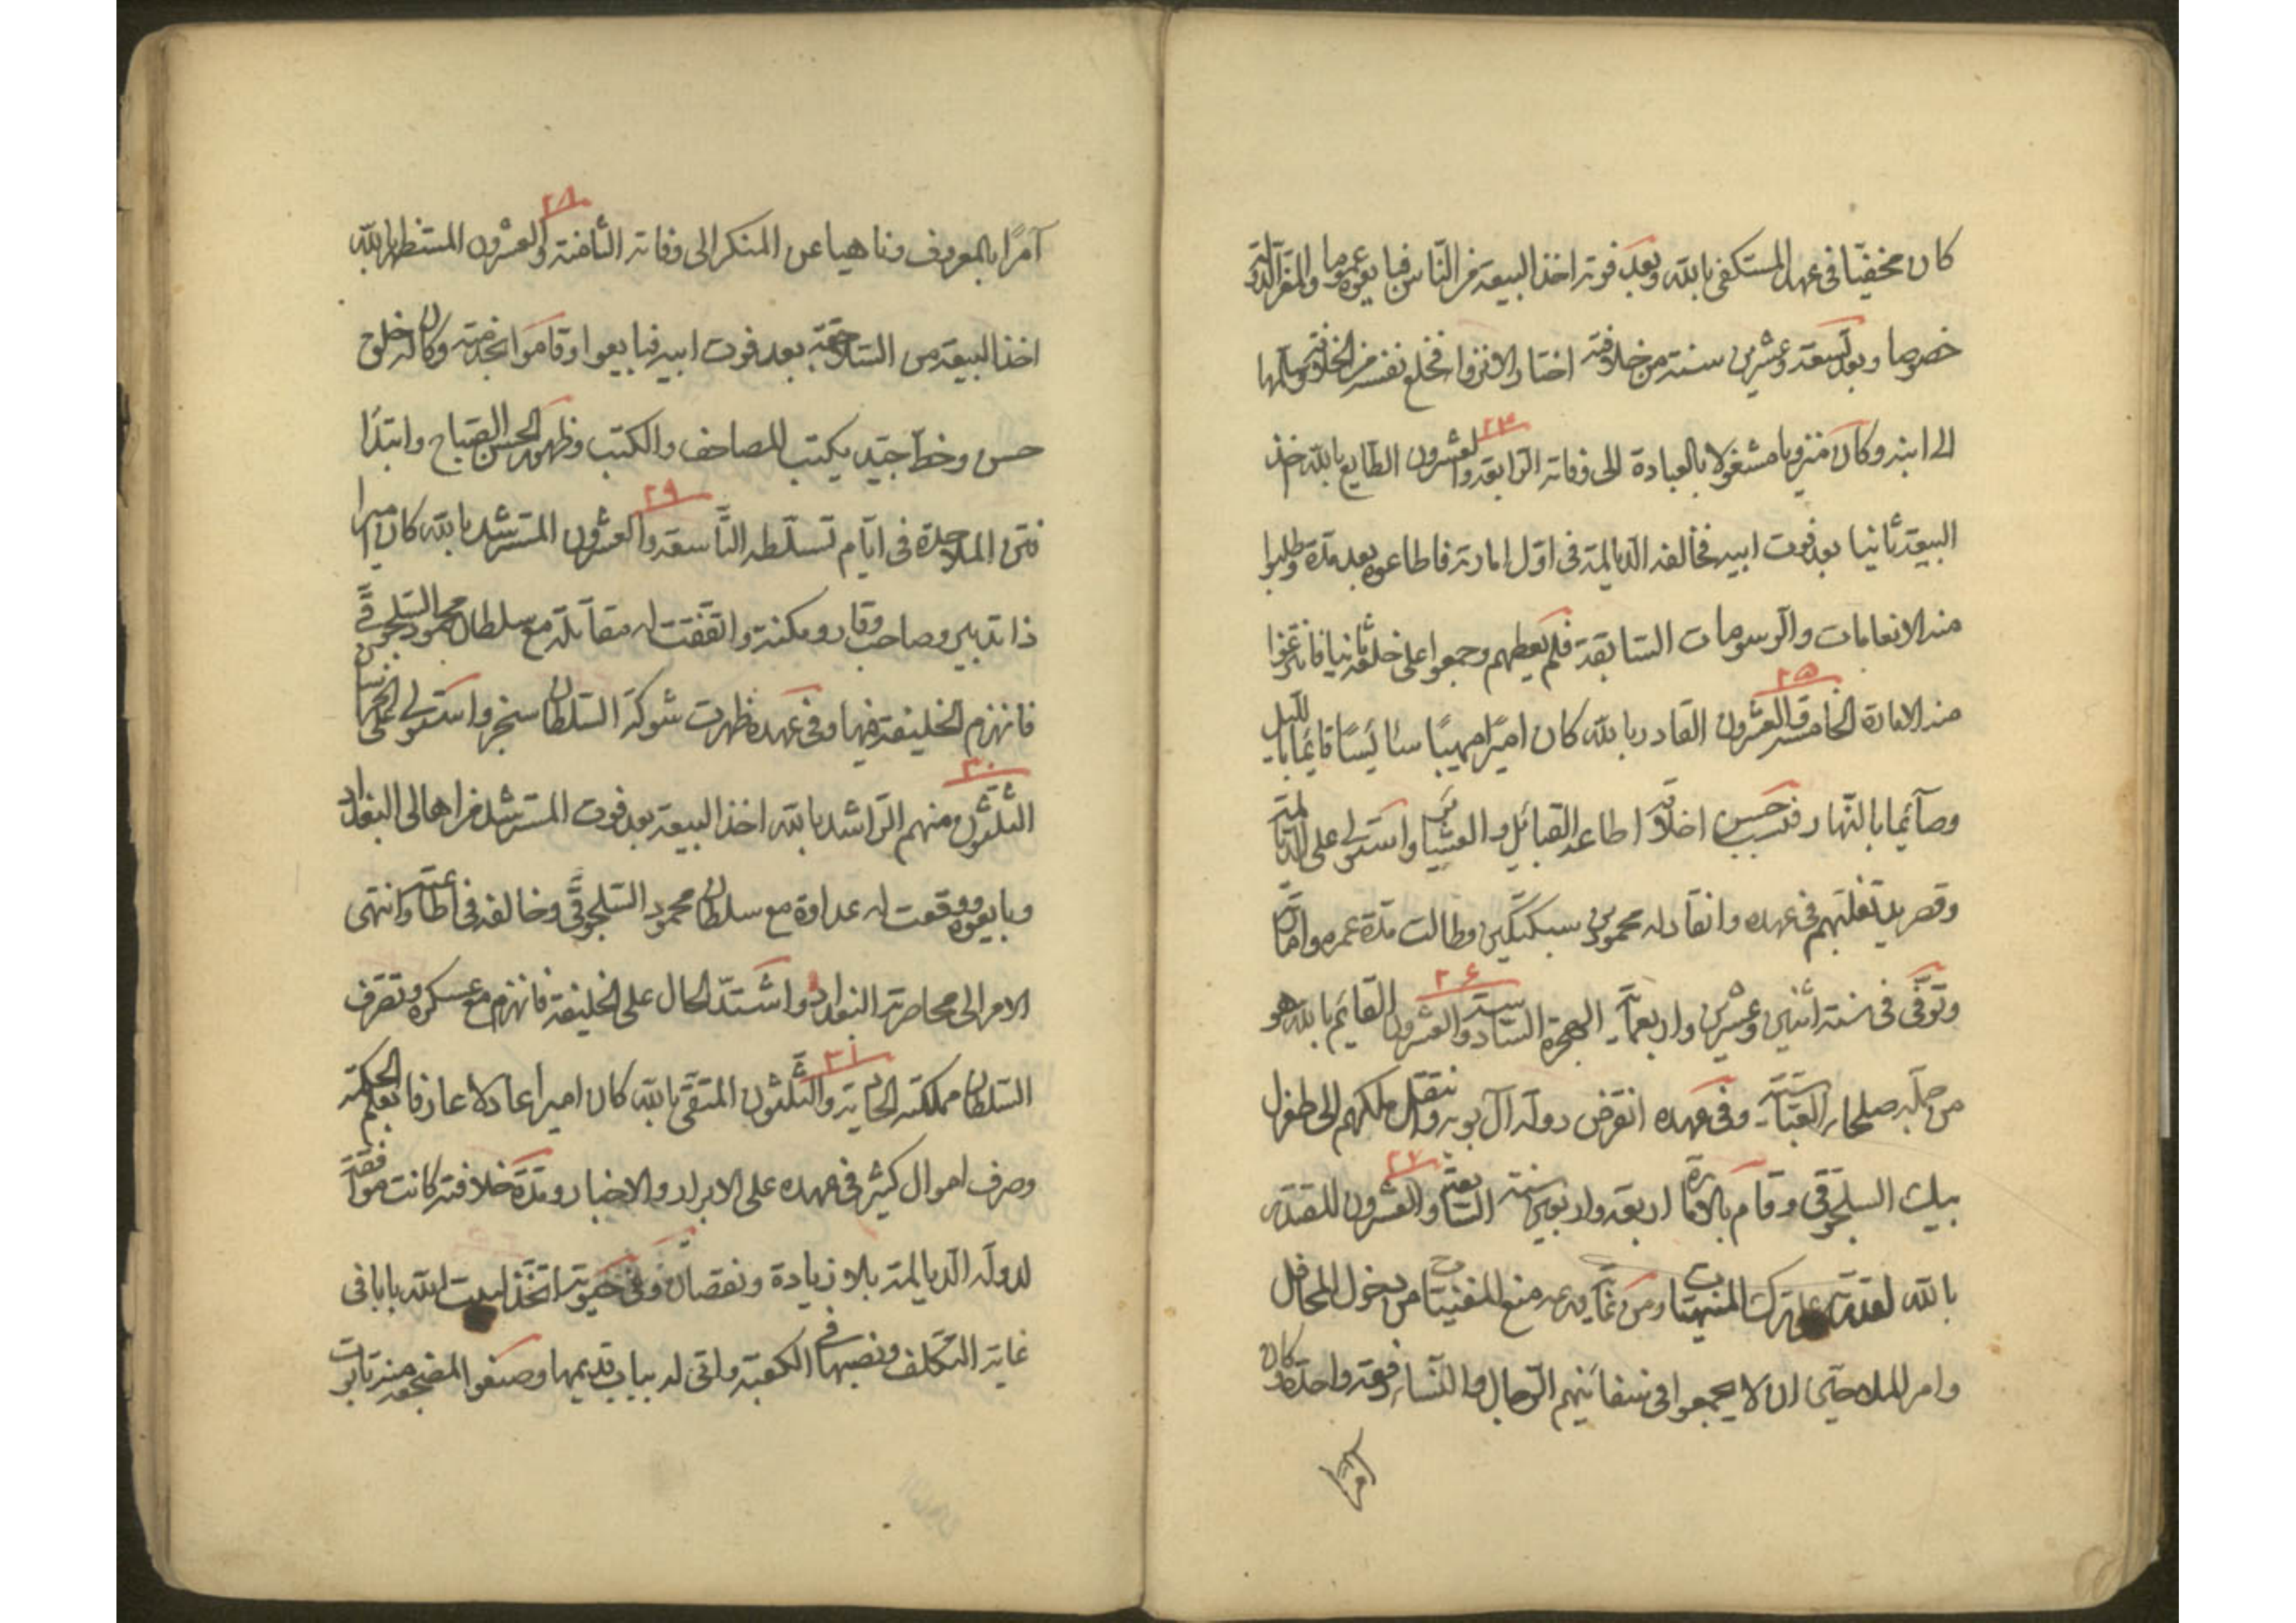 كان مخفيّا فى عهد المستكفى بالله وبعد فوته اخذ البيعة من النّاس فبايعوه عموما والمعزّ الدّولة
خصوصا وبعد تسعة وعشرين سنة من خلافته اختار الانزوا فخلع نفسه من الخلافة وسلّمها
الى ابنه وكان منزويا مشغولا بالعبادة الى وفاته الرّابعة والعشرون الطايع بالله اخذ
البيعة ثانيا بعد فوت ابيه فخالفه الدّيالمة فى اوّل امارته فاطاعوه بعد مدّة وطلبوا
منه الانعامات والرّسومات السّابقة فلم يعطهم وجمعوا على خلعه ثانيا فانتزعوا
منه الامارة الخامسة والعشرون القادر بالله كان اميرًا مهيبًا سائسًا قايمًا بالليل
وصآئما بالنّهار فبسبب حسن اخلاقه اطاعه القبائل والعشاير واستولى على الدّيالمة
وقصر يد تغلّبهم فى عهده وانقاد له محمود بن سبكتكين وطالت مدّة عمره وامارته
وتوفّى فى سنة اثنين وعشرين واربعمائة الهجرة السّادسة والعشرون القايم بالله هو
من جملة صلحاء العبّاسيّة وفى عهده انقرض دولة آل بويه وانتقل ملكهم الى طغرل
بيك السلجوقى وقام بالامارة اربعة واربعين سنة السّابعة والعشرون المقتدى
بالله لقدرته على ترك المنهيّات ومن غاية ورعه منع المغنيّات من دخول المحافل
وامر للملاحين ان لا يجمعوا فى سفائنهم الرّجال والنّساء دفعة واحدة وكان
آمرًا
آمرًا بالمعروف وناهيا عن المنكر الى وفاته الثّامنة والعشرون المستظهر بالله
اخذ البيعة من السّلاجقة بعد فوت ابيه فبايعوا وقاموا بخدمته وكان له خلق
حسن وخطّ جيّد يكتب المصاحف والكتب وظهور الحسن الصّباح وابتدا
فتن الملاحدة فى ايّام تسلّطه التّاسعة والعشرون المسترشد بالله كان اميرا
ذا تدبير وصاحب وقار ومكنة واتّفقت له مقاتلة مع سلطان محمود السّلجوقىّ
فانهزم الخليفة فيها وفى عهده ظهرت شوكة السّلطان سنجر واستولى على الخراسان
الثّلثون منهم الرّاشد بالله اخذ البيعة بعد فوت المسترشد من اهالى البغداد
وبايعوه ووقعت له عداوة مع سلطان محمود السّلجوقىّ وخالفه فى اطاعته وانتهى
الامر الى محاصرة البغداد واشتدّ الحال على الخليفة فانهزم مع عسكره وتصرّف
السّلطان مملكته الحادية والثّلثون المتّقى بالله كان اميرا عادلا عارفا بعلم الحكمة
وصرف اموال كثير فى عهده على الابرار والاخيار ومدّة خلافته كانت موافقة
لدولة الدّيالمة بلا زيادة ونقصان وفى حيوته اتّخذ لبيت الله بابا فى
غاية التّكلّف ونصبها فى الكعبة واتى له بباب قديمها وصنعوا لمضجعه منه تابوت